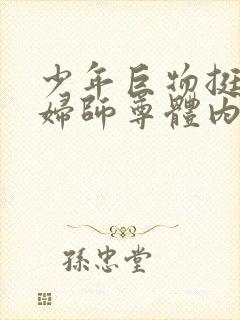 少年巨物挺
婦師尊體內
孫忠堂